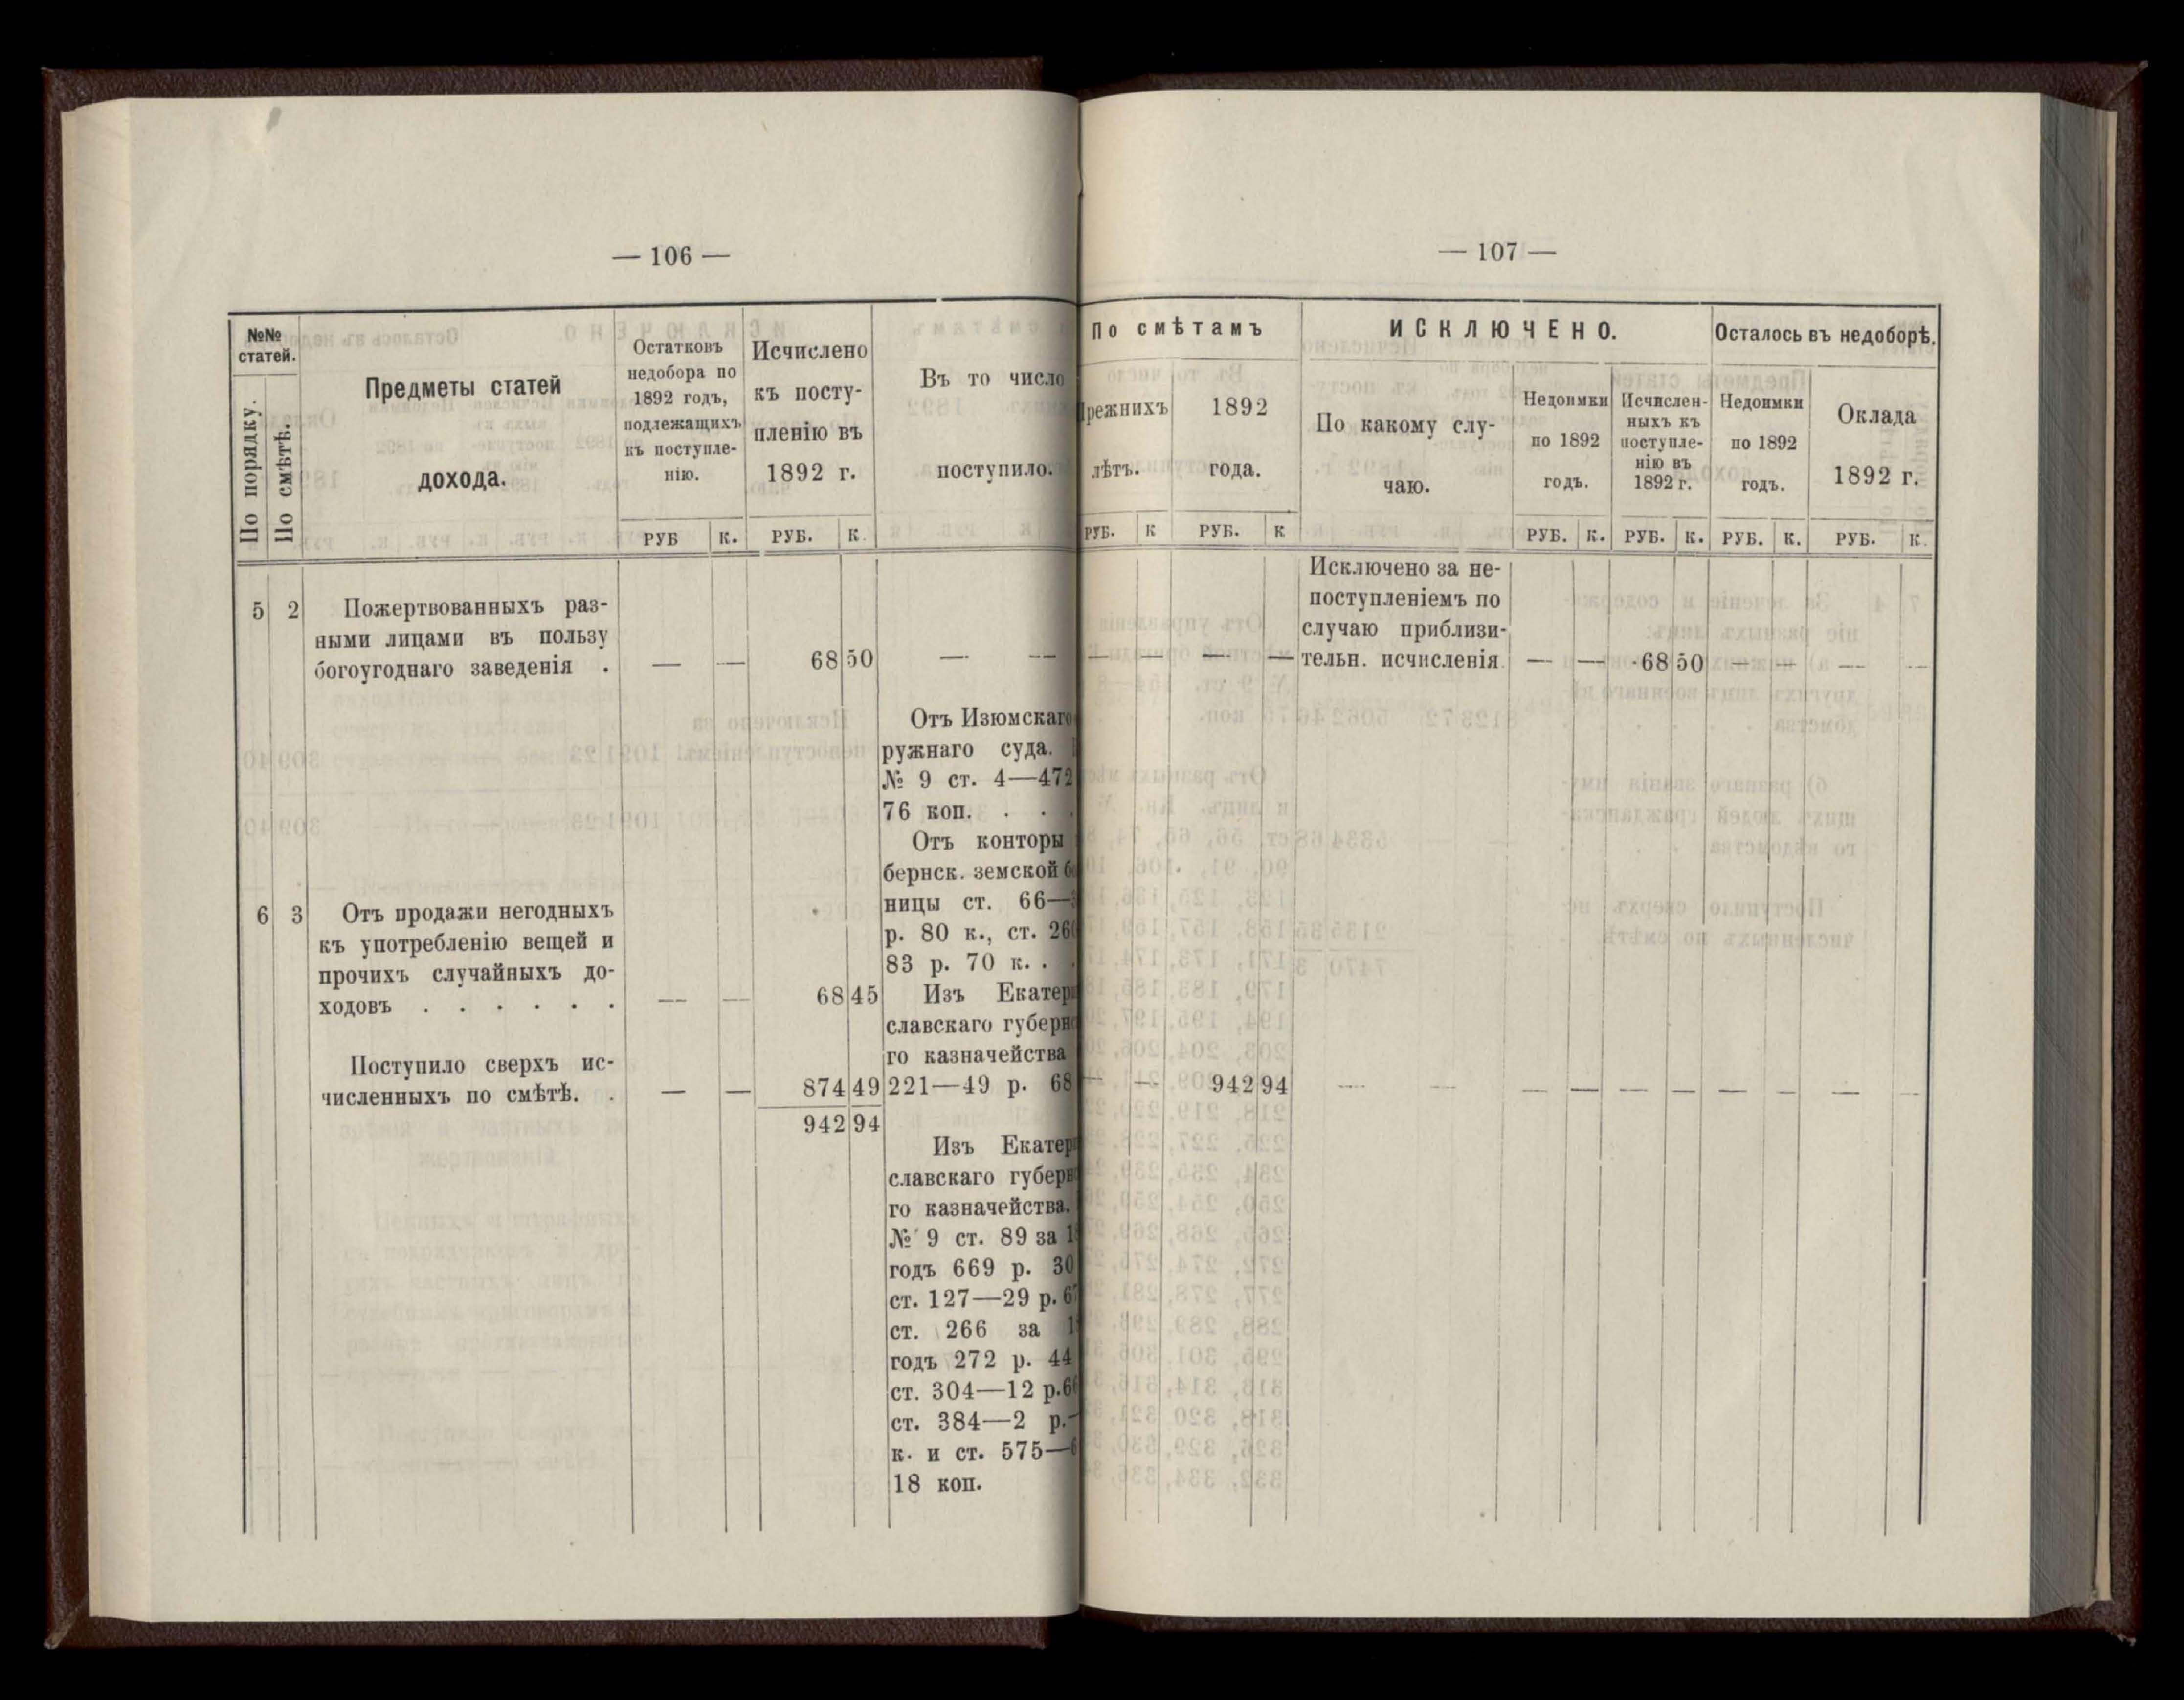 — 106 —
№№
статей.
По порядку.
По смѣтѣ.
Предметы статей
дохода.
Остатковъ
недобора по
1892 годъ,
подлежащихъ
къ поступле-
нію.
Исчислено
къ посту-
пленію въ
1892 г.
Въ то число
поступило.
РУБ К. РУБ. К.
5 2 Пожертвованныхъ раз-
ными лицами въ пользу
богоугоднаго заведенія .
— — 68 50 — —
Отъ Изюмскаго
ружнаго суда.
№ 9 ст. 4—472
76 коп. . .
Отъ конторы
бернск. земской
ницы ст. 66—
р. 80 к., ст.
83 р. 70 к. .
6 3 Отъ продажи негодныхъ
къ употребленію вещей и
прочихъ случайныхъ до-
ходовъ . . . . . .
— — 68 45
Изъ Екатери
славскаго губернс
го казначейства
221—49 р. 68
Поступило сверхъ ис-
численныхъ по смѣтѣ. .
— — 874 49
942 94
Изъ Екатери
славскаго губерн
го казначейства.
№ 9 ст. 89 за
годъ 669 р. 30
ст. 127—29 р.
ст. 266 за
годъ 272 р. 44
ст. 304—12 р.
ст. 384—2 р.—
к. и ст. 575—
18 коп.
— 107 —
По смѣтамъ
Прежнихъ
лѣтъ.
1892
года.
ИСКЛЮЧЕНО.
По какому слу-
чаю.
Недоимки
по 1892
годъ.
Исчислен-
ныхъ къ
поступле-
нію въ
1892 г.
Осталось въ недоборѣ.
Недоимки
по 1892
годъ.
Оклада
1892 г.
РУБ. К РУБ. К РУБ. К. РУБ. К. РУБ. К. РУБ. К.
Исключено за не-
поступленіемъ по
случаю приблизи-
тельн. исчисленія.
— — — — — — 68 50 — — — —
— — 942 94 — — — — — — — — — —